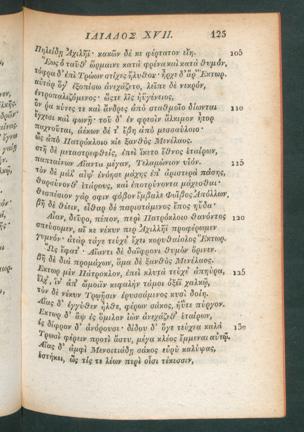 ΙΛΙΑΔΟΣ XVII. 125
Πηλείδῃ Ἀχιλῆϊ· κακῶν δέ κε φέρτατον εἴη. 105
Ἕως ὁ ταῦθ' ὥρμαινε κατὰ φρένα καὶ κατὰ θυμόν,
τόφρα δ' ἐπὶ Τρώων στίχες ἤλυθον· ἦρχε δ' ἄρ' Ἕκτωρ.
αὐτὰρ ὅγ' ἐξοπίσω ἀνεχάζετο, λεῖπε δὲ νεκρόν,
ἐντροπαλιζόμενος· ὥστε λὶς ἠϋγένειος,
ὅν ῥα κύνες τε καὶ ἄνδρες ἀπὸ σταθμοῖο δίωνται 110
ἔγχεσι καὶ φωνῇ· τοῦ δ' ἐν φρεσὶν ἄλκιμον ἦτορ
παχνοῦται, ἀέκων δέ τ' ἔβη ἀπὸ μεσσαύλοιο·
ὣς ἀπὸ Πατρόκλοιο κίε ξανθὸς Μενέλαος.
στῆ δὲ μεταστρεφθείς, ἐπεὶ ἵκετο ἔθνος ἑταίρων,
παπταίνων Αἴαντα μέγαν, Τελαμώνιον υἱόν. 115
τὸν δὲ μάλ' αἶψ' ἐνόησε μάχης ἐπ' ἀριστερὰ πάσης,
θαρσύνονθ' ἑτάρους, καὶ ἐποτρύνοντα μάχεσθαι·
θεσπέσιον γάρ σφιν φόβον ἔμβαλε Φοῖβος Ἀπόλλων,
βῆ δὲ θέειν, εἶθαρ δὲ παριστάμενος ἔπος ηὔδα·
Αἶαν, δεῦρο, πέπον, περὶ Πατρόκλοιο θανόντος 120
σπεύσομεν, αἴ κε νέκυν περ Ἀχιλλῆϊ προφέρωμεν
γυμνόν· ἀτὰρ τάγε τεύχε' ἔχει κορυθαίολος Ἕκτωρ.
Ὣς ἔφατ'· Αἴαντι δὲ δαΐφρονι θυμὸν ὄρινεν·
βῆ δὲ διὰ προμάχων, ἅμα δὲ ξανθὸς Μενέλαος.
Ἕκτωρ μὲν Πάτροκλον, ἐπεὶ κλυτὰ τεύχε' ἀπηύρα, 125
ἕλχ', ἵν' ἀπ' ὤμοιϊν κεφαλὴν τάμοι ὀξέϊ χαλκῷ,
τὸν δὲ νέκυν Τρωῇσιν ἐρυσσάμενος κυσὶ δοίη.
Αἴας δ' ἐγγύθεν ἦλθε, φέρων σάκος, ἠΰτε πύργον.
Ἕκτωρ δ' ἂψ ἐς ὅμιλον ἰὼν ἀνεχάζεθ' ἑταίρων,
ἐς δίφρον δ' ἀνόρουσε· δίδου δ' ὅγε τεύχεα καλὰ 130
Τρωσὶ φέρειν προτὶ ἄστυ, μέγα κλέος ἔμμεναι αὐτῷ.
Αἴας δ' ἀμφὶ Μενοιτιάδῃ σάκος εὐρὺ καλύψας,
ἑστήκει, ὥς τίς τε λέων περὶ οἷσι τέκεσσιν,